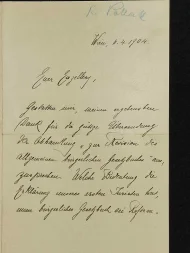 Wien, 6.4.1904.
Euer Exzellenz,
Gestatten mir, meinen ergebensten
Dank für die gütige Übersendung
der Abhandlung „zur Revision des
allgemeinen bürgerlichen Gesetzbuchs" aus-
zusprechen. Welche Bedeutung die
Erklärung unseres ersten Juristen hat,
unser bürgerliches Gesetzbuch sei